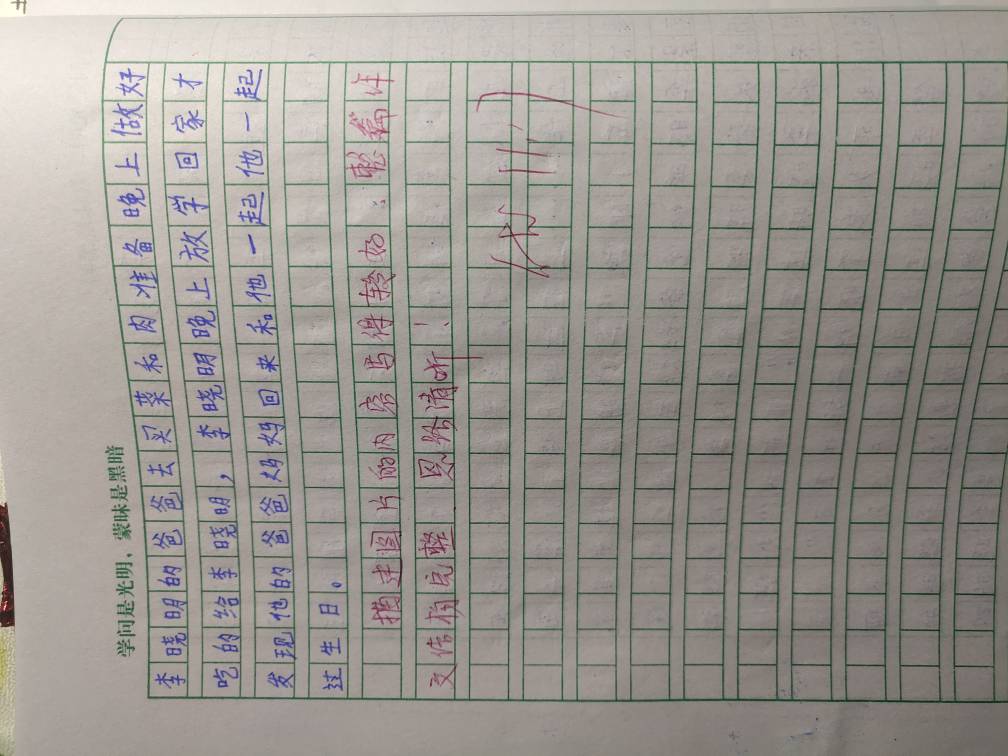 学问是光明，蒙昧是黑暗
李晓明的爸爸去买菜和肉准备晚上做好
吃的给李晓明，李晓明晚上放学回家才
发现他的爸爸妈妈回来和他一起他一起
过生日。
描述图片的内容写得较好。整篇作
文结构完整 思路清晰！